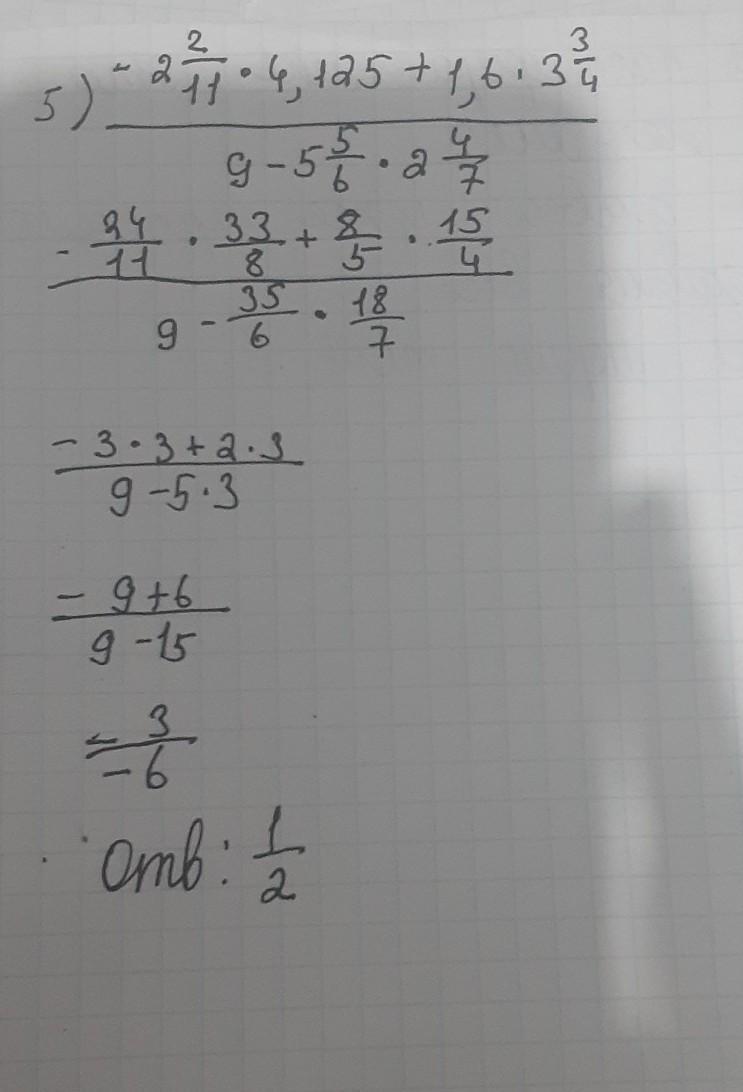 5) - 2 2/11 · 4,125 + 1,6 · 3 3/4
9 - 5 5/6 · 2 4/7
- 24/11 · 33/8 + 8/5 · 15/4
9 - 35/6 · 18/7
- 3 · 3 + 2 · 3
9 - 5 · 3
- 9 + 6
9 - 15
- 3
- 6
Отв: 1/2